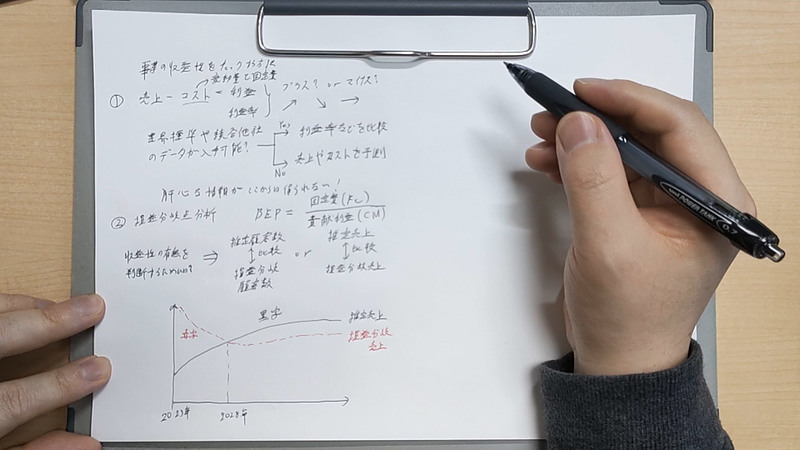 事業の収益性をチェックする方法
変動費と固定費
① 売上 - コスト = 利益
利益率
プラス? or マイナス?
業界標準や競合他社
のデータが入手可能?
Yes
利益率などを比較
No
売上やコストを予測
肝心な情報がここからは得られない!
② 損益分岐点分析
BEP = 固定費(FC)
貢献利益(CM)
収益性の有無を
判断するためには?
⇒
推定顧客数
↕比較
損益分岐
顧客数
or
推定売上
↕比較
損益分岐売上
黒字
赤字
推定売上
損益分岐
売上
2023年
2028年
uni POWER TANK 0.7